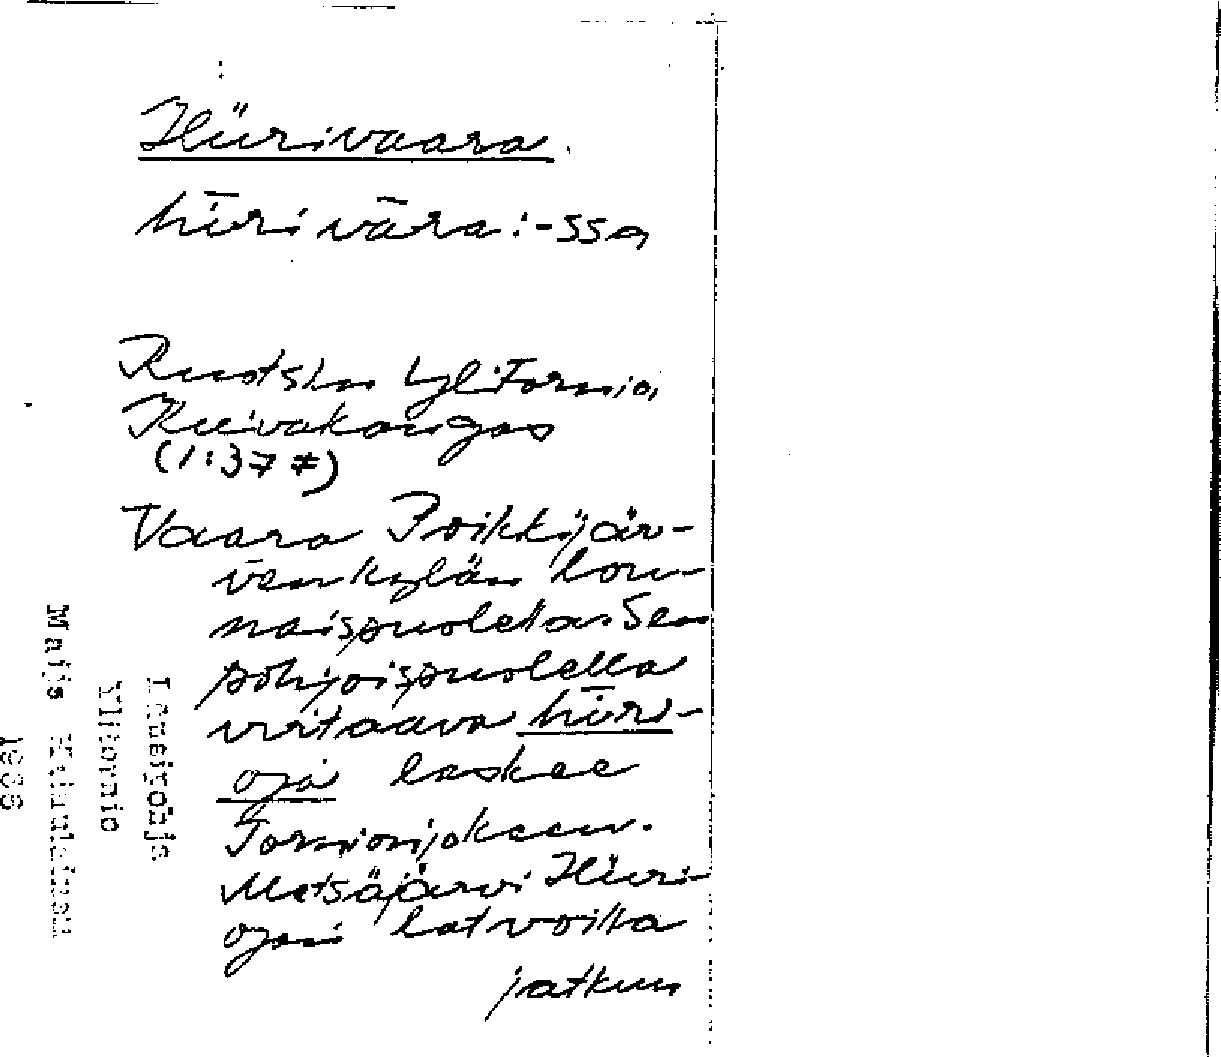 Hiirivaara.
hīrivāra: -ssa
Ruotsin Ylitornio,
Kuivakangas
(1:37 *)
Vaara Poikkijär-
venkylän lou-
naispuolella. Sen
pohjoispuolella
virtaava hīri-
oja laskee
Tornionjokeen.
Metsäjärvi Hiiri-
ojan latvoilla
jatkuu
Länsipohja
Ylitornio
Maija
1966